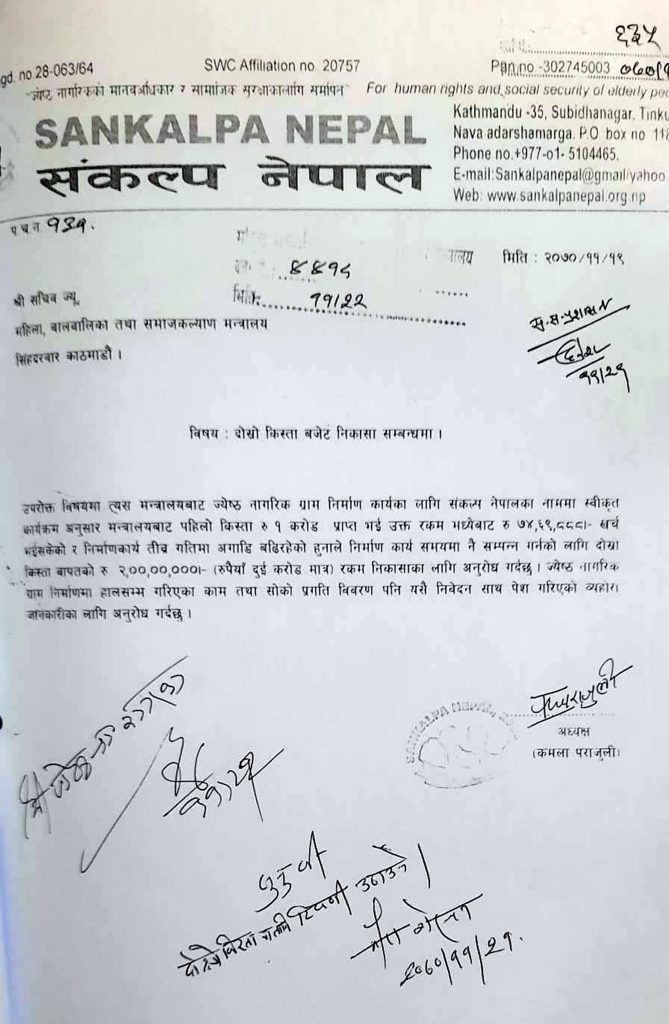 ६३५
gd. no 28-063/64 SWC Affiliation no. 20757 Pan.no -302745003
"ज्येष्ठ नागरिकको मानवअधिकार र सामाजिक सुरक्षाकालागि समर्पित" For human rights and social security of elderly peo
SANKALPA NEPAL
संकल्प नेपाल
Kathmandu -35, Subidhanagar, Tinku
Nava adarshamarga. P.O box no 11
Phone no.+977-o1- 5104465,
E-mail:Sankalpanepal@gmail/yahoo
Web: www.sankalpanepal.org.np
प.च.न १३१.
मिति : २०७०/११/१९
मिति: ११/२२
श्री सचिव ज्यू,
महिला, बालबालिका तथा समाजकल्याण मन्त्रालय
सिंहदरवार काठमाडौं ।
११/२१
विषय : दोस्रो किस्ता बजेट निकासा सम्बन्धमा ।
उपरोक्त बिषयमा त्यस मन्त्रालयबाट ज्येष्ठ नागरिक ग्राम निर्माण कार्यका लागि संकल्प नेपालका नाममा स्वीकृत
कार्यक्रम अनुसार मन्त्रालयबाट पहिलो किस्ता रु १ करोड प्राप्त भई उक्त रकम मध्येबाट रु ७४,६९,८८८।- खर्च
भईसकेको र निर्माणकार्य तीव्र गतिमा अगाडि बढिरहेको हुनाले निर्माण कार्य समयमा नै सम्पन्न गर्नको लागि दोस्रो
किस्ता बापतको रु २,००,००,०००।- (रुपैयाँ दुई करोड मात्र) रकम निकासाका लागि अनुरोध गर्दछु । ज्येष्ठ नागरिक
ग्राम निर्माणमा हालसम्म गरिएका काम तथा सोको प्रगति बिबरण पनि यसै निवेदन साथ पेश गरिएको व्यहोरा
जानकारीका लागि अनुरोध गर्दछु ।
SANKALPA NEPAL
अध्यक्ष
(कमला पराजुली)